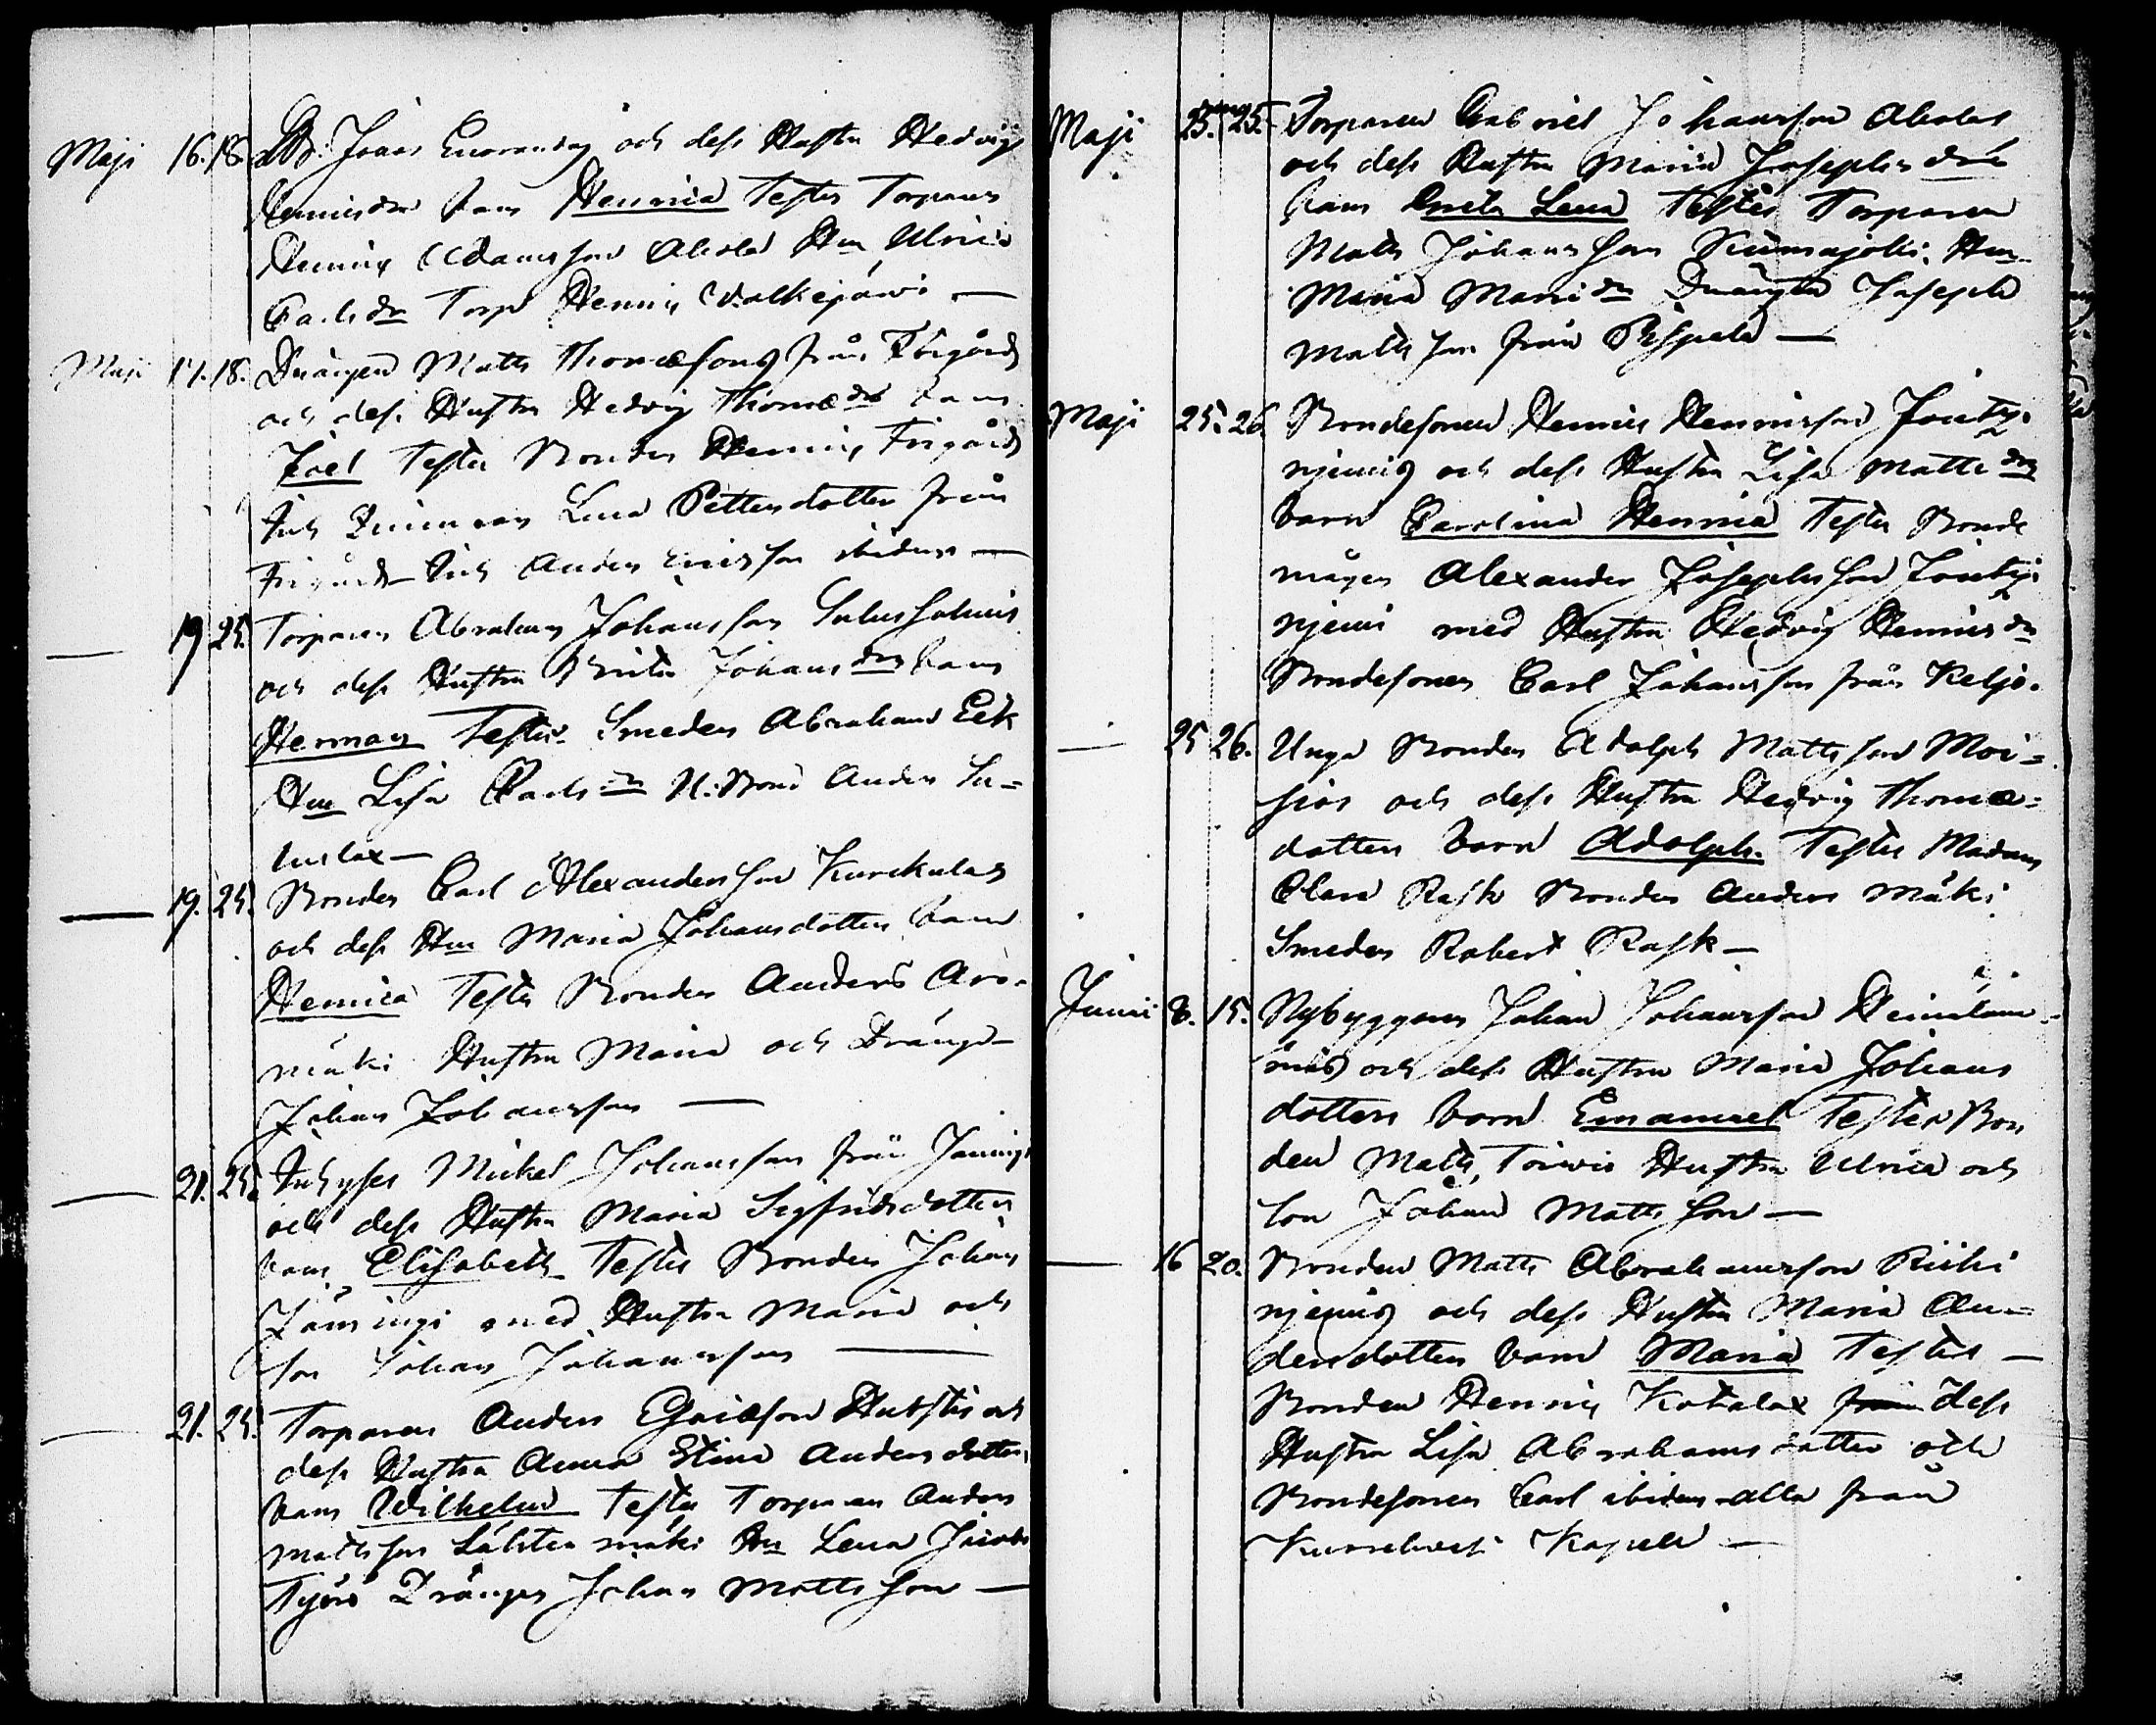 Maji 16. 18. Bd. Jonas och dess Hustru Hedvig
Henricsdr barn Henrica Testes Torparen
Henric Adamsson Ahola Hu Ulrica
Carlsdr Torp Henric Valkejärvi —
Maji 17. 18. Drängen Matts Thomæsons från Frigård
och dess Hustru Hedvig Thomædr barn
Joel Testes Bonden Henric Frigård
Inh Lena Pettersdotter från
Frigård Inh Anders Ericsson ibidem —
— 19 25. Torparen Abraham Johansson
och dess Hustru Brita Johansdr barn
Herman Testes Smeden Abraham Eek
Hu Lisa Carlsdr U: Bond Anders Sa=
lax —
— 19. 25. Bonden Carl Alexandersson Kurckulas
och dess Hu Maria Johansdotter barn
Henrica Testes Bonden Anders Aro-
mäki Hustru Maria och Dräng
Johan Johansson —
— 21. 25. Inhyses Mickel Johansson från Jämingi
och dess Hustru Maria Sigfridsdotter
barn Elisabeth Testes Bonden Johan
Jämingi med Hustru Maria och
son Johan Johansson —
— 21. 25. Torparen Anders Ericsson och
dess Hustru Anna Stina Andersdotter
barn Wilhelm Testes Torparen Anders
Mattsson mäki Hu Lena Jacobs
Drängen Johan Mattsson —
Maji 25. 25. Torparen Gabriel Johansson Aholas
och dess Hustru Maria Josephsdrs
barn Greta Lena Testes Torparen
Matts Johansson Hu
Maria Mariædr Drängen Joseph
Mattsson från —
Maji 25. 26. Bondesonen Henric Henricsson
njemis och dess Hustru Lisa Mattsdrs
barn Carolina Henrica Testes Bonde
mågen Alexander Josephsson
njemi med Hustru Hedvig Henricsdr
Bondesonen Carl Johansson från Keljo.
— 25 26. Unga Bonden Adolph Mattsson Moi=
sios och dess Hustru Hedvig Thomæ=
dotters barn Adolph. Testes Madam
Clara Rask Bonden Anders Mäki
Smeden Robert Rask —
Junii 8. 15. Nybyggaren Johan Johansson
och dess Hustru Maria Johans
dotters barn Emanuel Testes Bon
den Matts Toiwis Hustru Ulrica och
son Johan Mattsson —
— 16 20. Bonden Matts Abrahamsson
njemis och dess Hustru Maria An=
dersdotters barn Maria Testes —
Bonden Henric Kotalax från dess
Hustru Lisa Abrahamsdotter och
Bondesonen Carl ibidem alla från
Kapell —